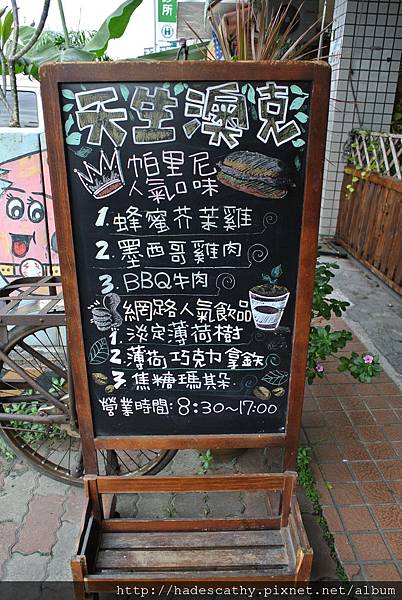 診所
天生澳克
帕里尼
人氣口味
1. 蜂蜜芥茉雞
2. 墨西哥雞肉
3. BBQ牛肉
網路人氣飲品
1. 淡定薄荷樹
2. 薄荷巧克力拿鉄
3 焦糖瑪其朵
營業時間: 8:30~17:00
http://hadescathy.pixnet.net/album